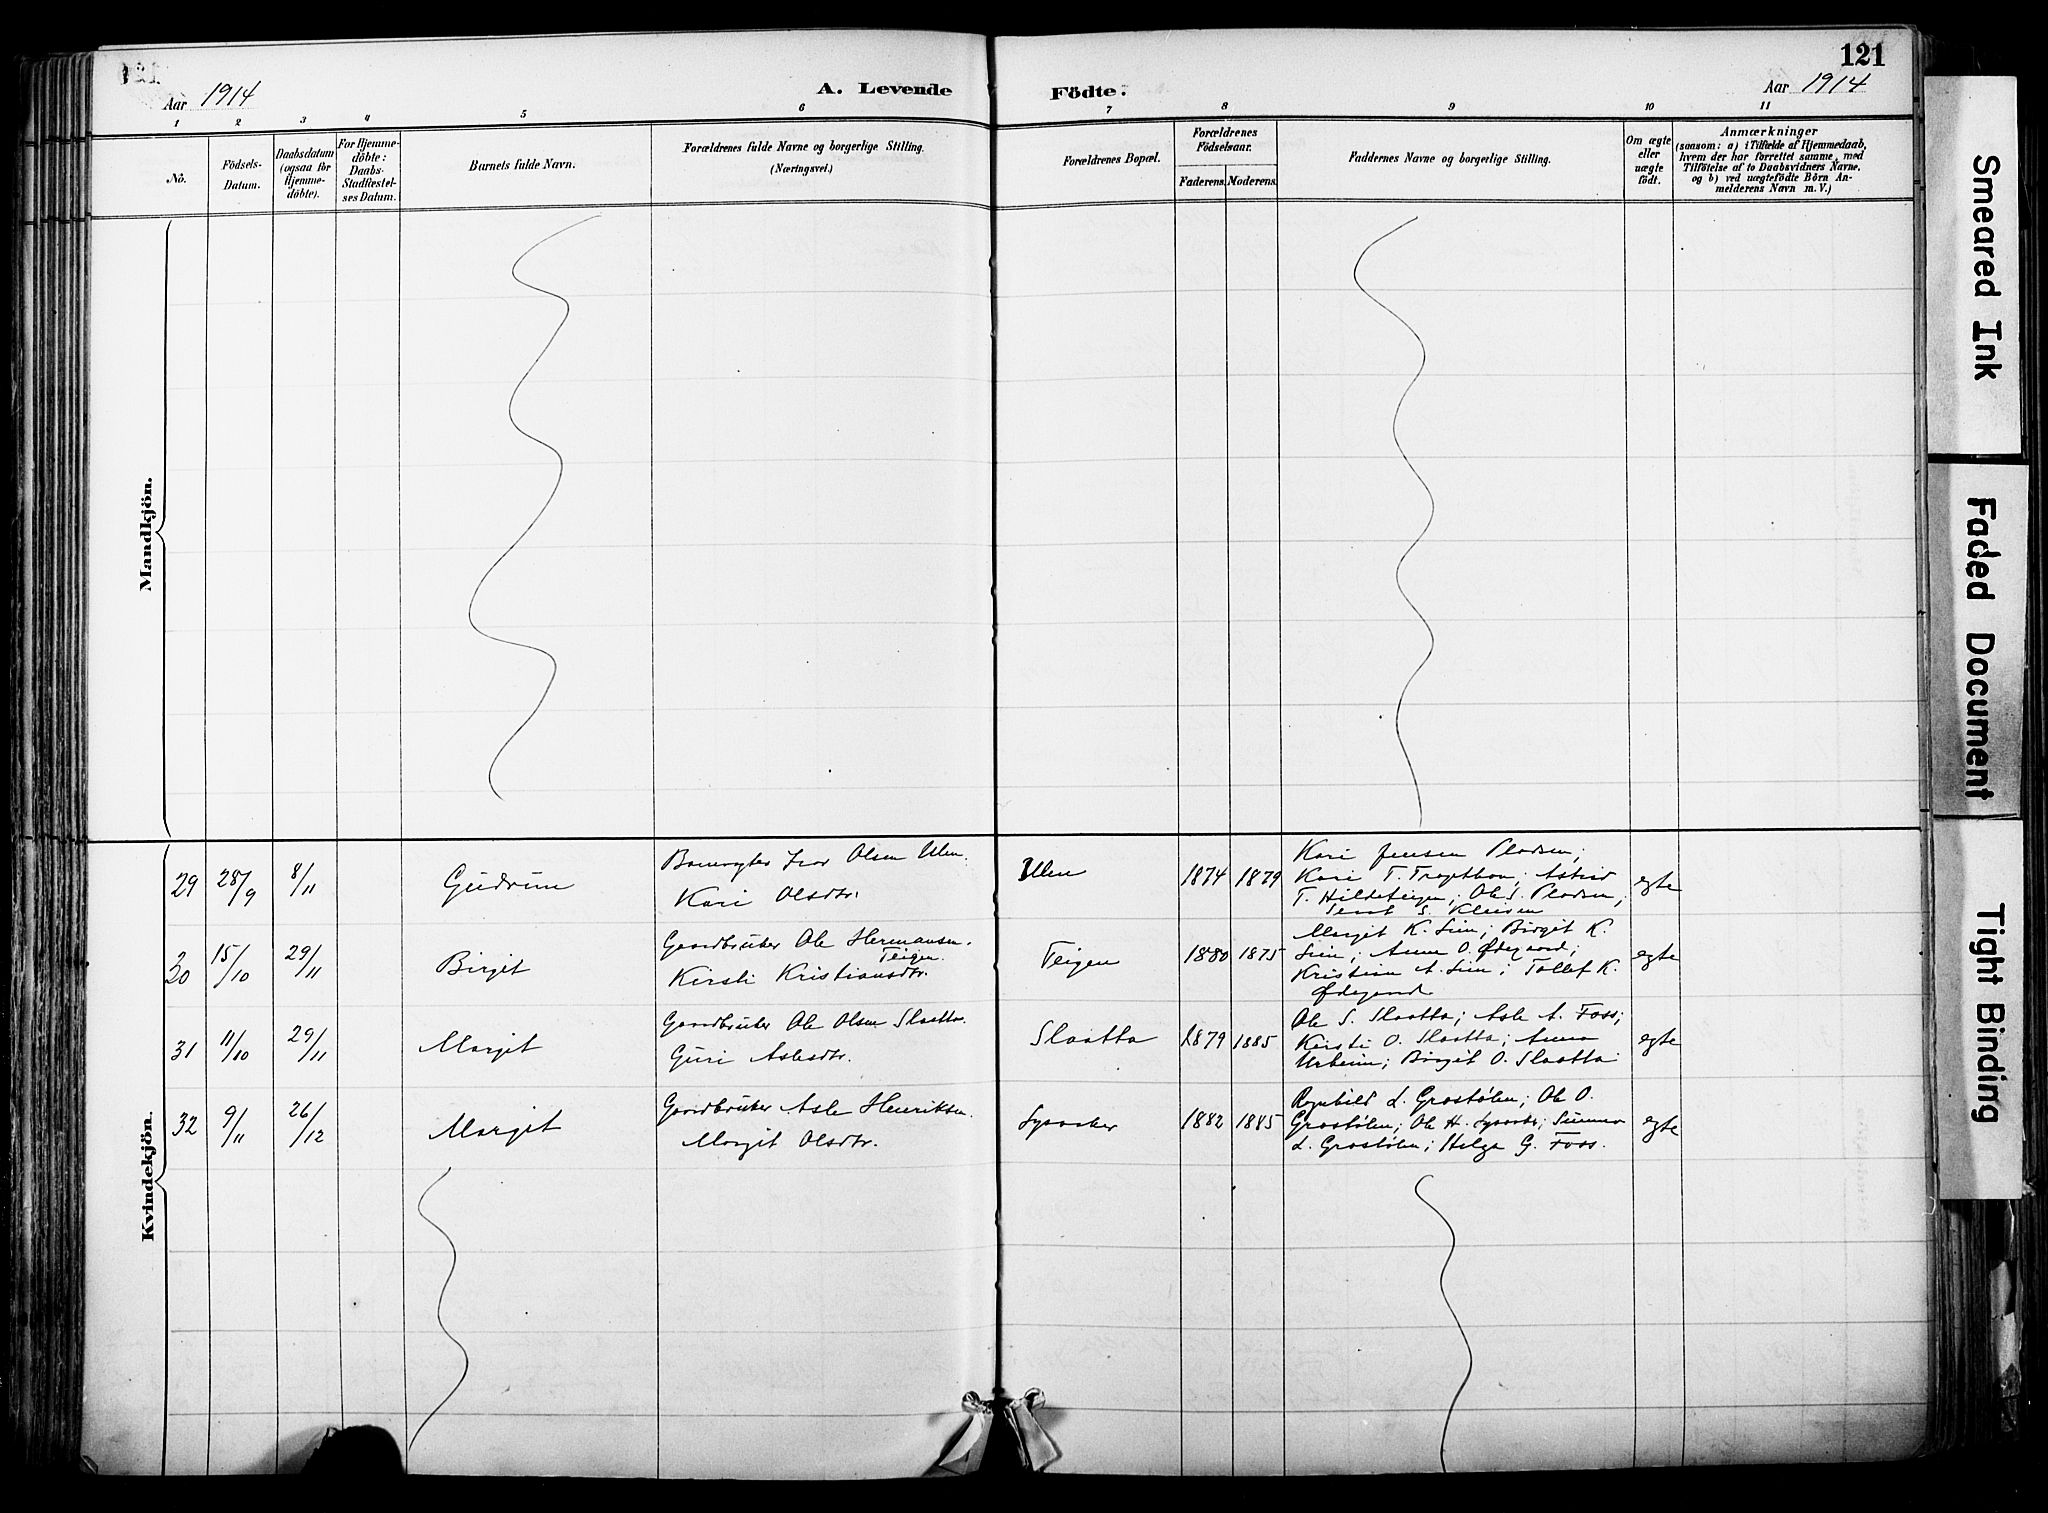 121
Aar 1914
A. Levende Födte:
Aar 1914
1 2 3 4 5 6 7 8 9 10 11
No.
Födsels-
Datum.
Daabsdatum
(ogsaa for
Hjemme-
döbte).
For Hjemme-
döbte:
Daabs-
Stadfæstel-
ses Datum.
Barnets fulde Navn.
Forældrenes fulde Navne og borgerlige Stilling.
(Næringsvei.)
Forældrenes Bopæl.
Forældrenes
Födselsaar.
Faderens. Moderens.
Faddernes Navne og borgerlige Stilling.
Om ægte
eller
uægte
födt.
Anmærkninger
(saasom: a) i Tilfælde af Hjemmedaab,
hvem der har forrettet samme, med
Tilföielse af to Daabsvidners Navne,
og b) ved uægtefödte Börn An-
melderens Navn m. V.)
Mandkjön.
Kvindekjön.
29 28/9 8/11 Gudrun
Olsen Ulen.
Kari Olsdtr.
Ulen 1874 1879
Kari Jensen Pladsen;
Kari T. Astrid
T. Hildeteigen; Ole S. Pladsen;
S.
egte
30 15/10 29/11 Birgit
Gaardbruker Ole Hermansen
Teigen.
Kirsti Kristiansdtr.
Teigen 1880 1875
Margit K. Lien; Birgit K.
Lien; Anne O. Ødegaard;
Kristian A. Lien; Tollef K.
Ødegaard
egte
31 11/10 29/11 Margit
Gaardbruker Ole Olsen Slaatta.
Guri Aslesdtr.
Slaatta 1879 1885
Ole S. Slaatta; Asle A. Foss;
Kirsti O. Slaatta; Anna
Urheim; Birgit O. Slaatta
egte
32 9/11 26/12 Margit
Gaardbruker Asle Henriksen.
Margit Olsdtr.
Lysaaker 1882 1885
Ragnhild L. Grøstølen; Ole O.
Grøstølen; Ole H. Lysaaker;
L. Grøstølen; Helge G. Foss.
egte
Smeared Ink
Faded Document
Tight Binding